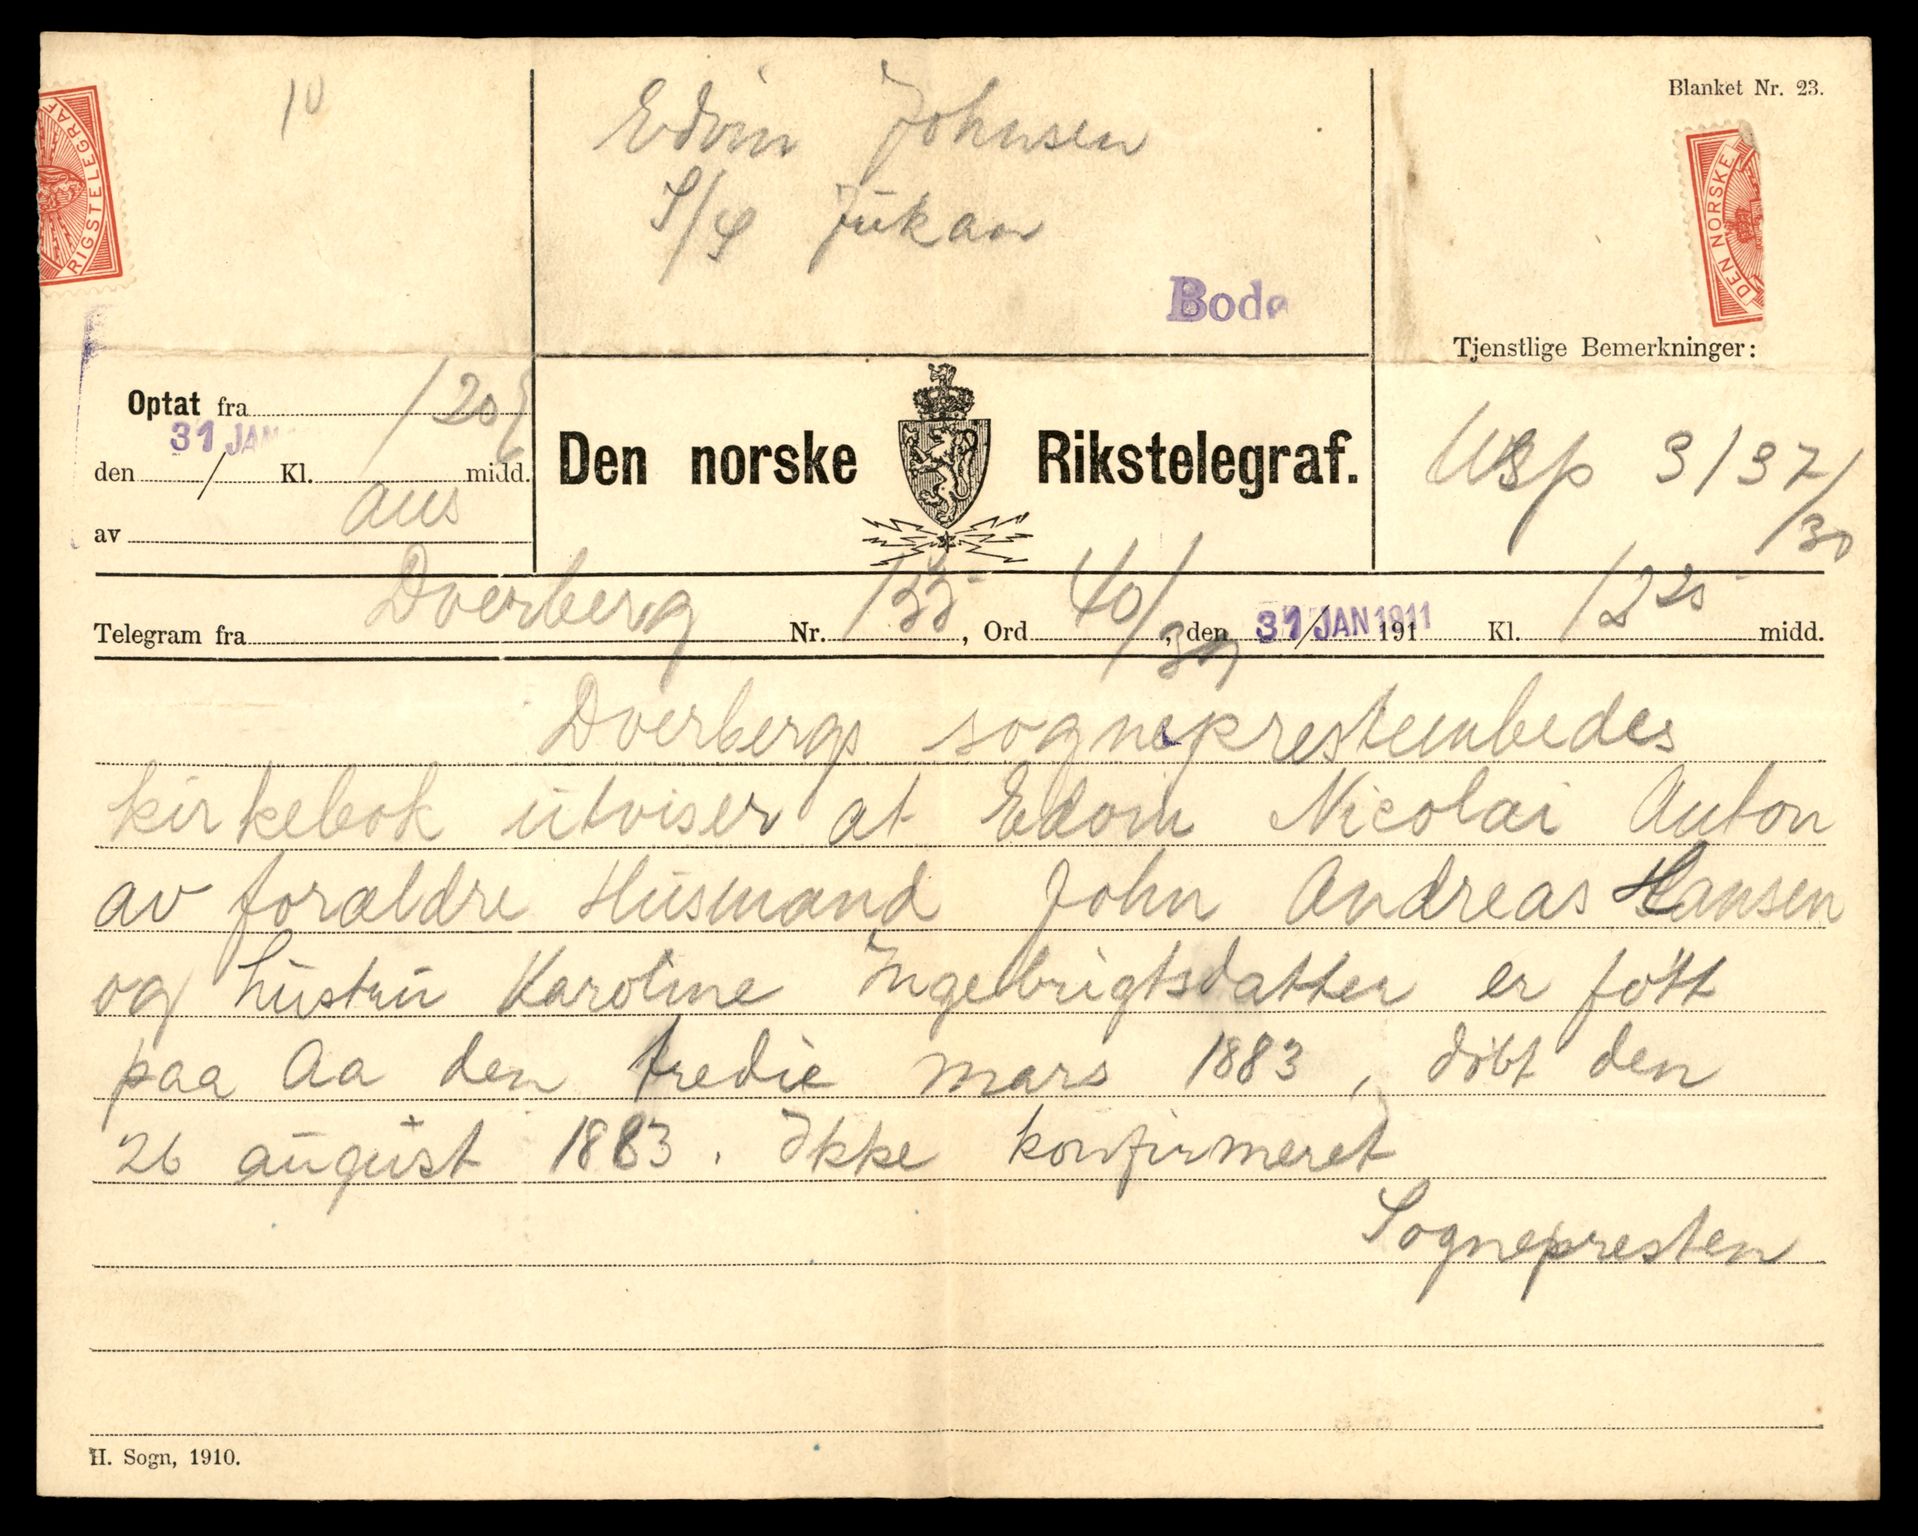 10
Edvin Johnsen
S/S Jukan
Bodø
Blanket Nr. 23.
RIGSTELEGRAF
DEN NORSKE
Tjenstlige Bemerkninger:
Optat fra 1205
31 JAN
den / Kl. midd.
av aus
Den norske Rikstelegraf.
3/37/30
Telegram fra Dverberg Nr. 135, Ord 40/39, den 31/JAN 1911 191 Kl. 1225 midd.
Dverbergs sogneprestembedes
kirkebok utviser at Edvin Nicolai Anton
av forældre Husmand John Andreas Hansen
og hustru Karoline Ingebrigtsdatter er født
paa Aa den tredie mars 1883, døbt den
26 august 1883. Ikke konfirmeret
Sognepresten
H. Sogn, 1910.